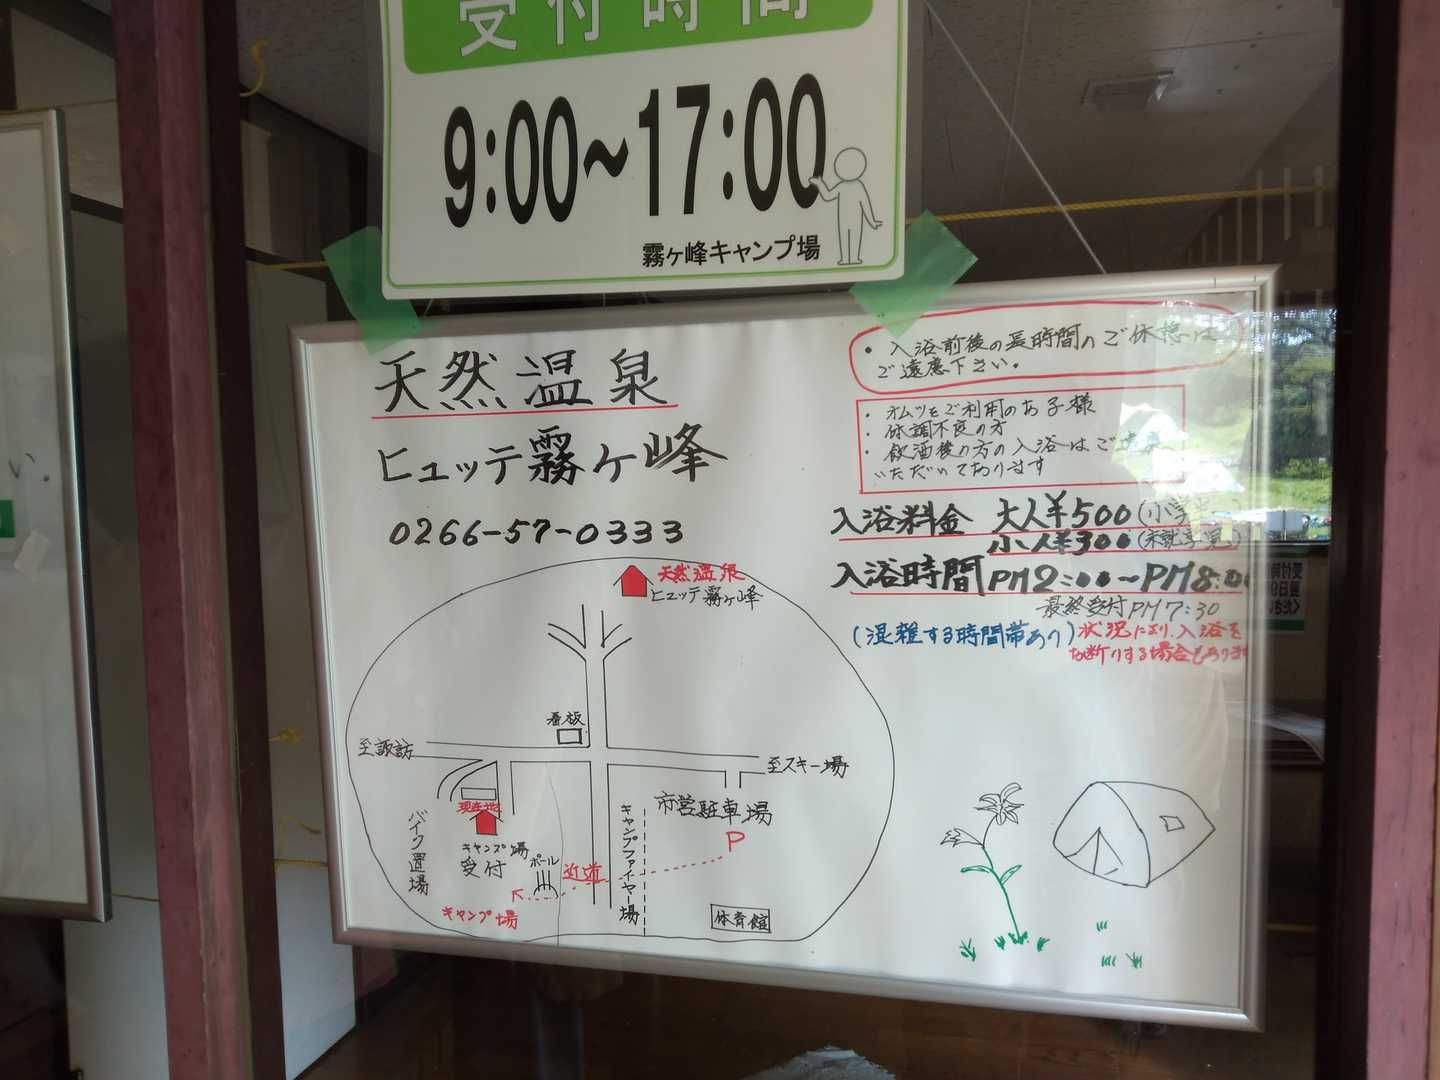 受付時間
9:00~17:00
霧ヶ峰キャンプ場
天然温泉
ヒュッテ霧ヶ峰
0266-57-0333
・入浴前後の長時間のご休憩は
ご遠慮下さい。
・オムツをご利用のお子様
・体調不良の方
・飲酒後の方の入浴はご遠慮
いただいております
入浴料金 大人¥500(小学生
小人¥300(未就学児)
入浴時間PM2:00~PM8:00
最終受付PM7:30
(混雑する時間帯あり)状況により、入浴を
お断りする場合もあります
天然温泉
ヒュッテ霧ヶ峰
看板
至諏訪
至スキー場
現在地
バイク置場
キャンプ場
受付
ポール
近道
キャンプファイヤー場
市営駐車場
P
キャンプ場
体育館